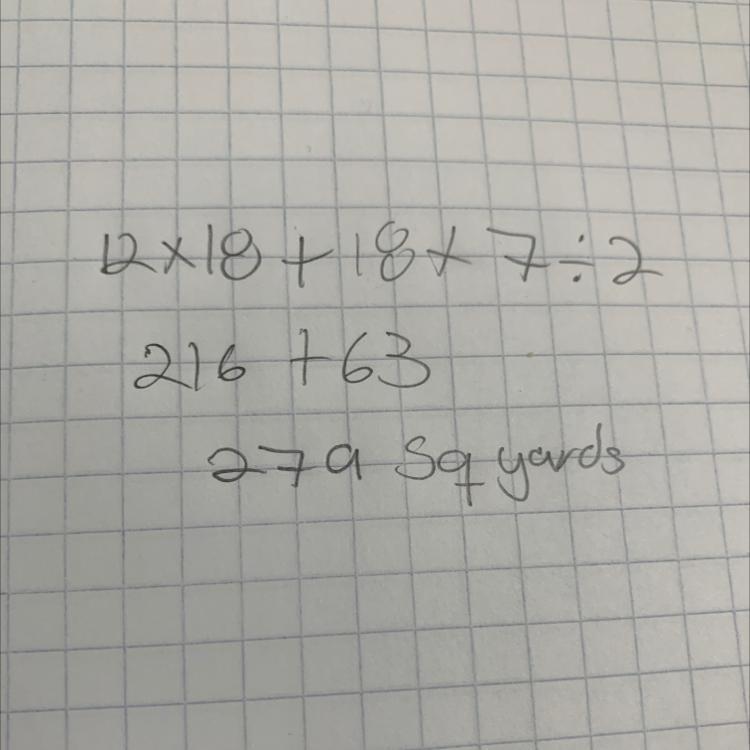 12×18 + 18 × 7 ÷ 2
216 + 63
279 sq yards